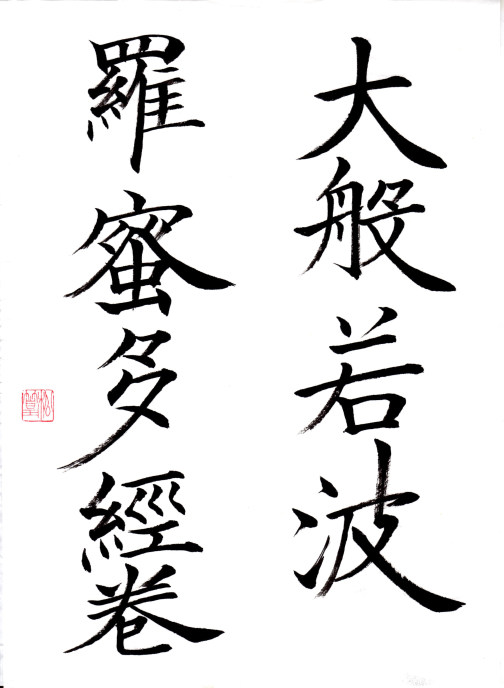 大般若波
羅蜜多經卷